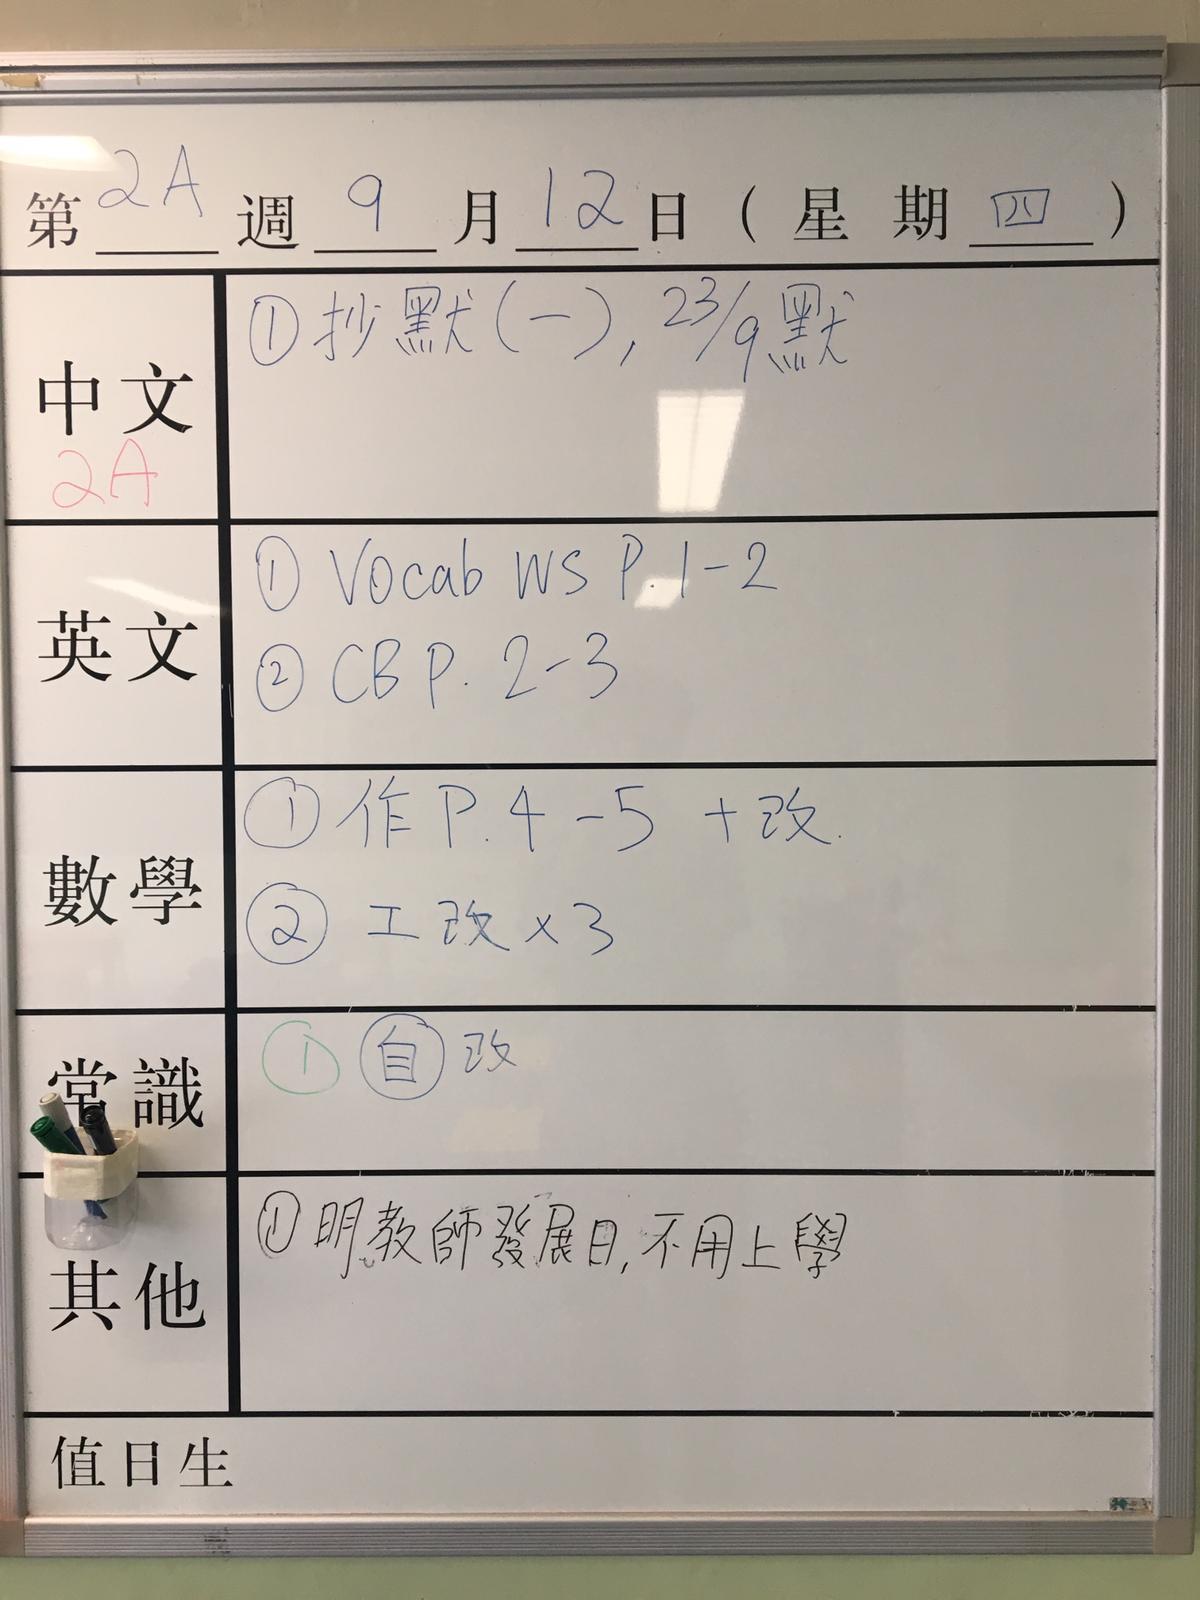 第 2A 週 9 月 12 日 ( 星 期 四 )
中文
2A
① 抄默(一), 23/9默
英文
① Vocab WS P.1-2
② CB P. 2-3
數學
① 作P.4-5 +改.
② 工改×3
常識
① 自 改
其他
① 明教師發展日,不用上學
值日生